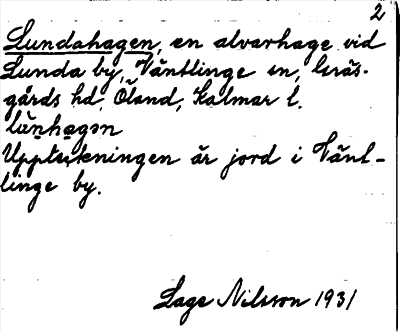 2
Lundahagen, en alvarhage vid
Lunda by, Väntlinge sn, Gräs-
gårds hd, Öland, Kalmar l.
lùnhagən
Uppteckningen är jord i Vänt-
linge by.
Lage Nilsson 1931